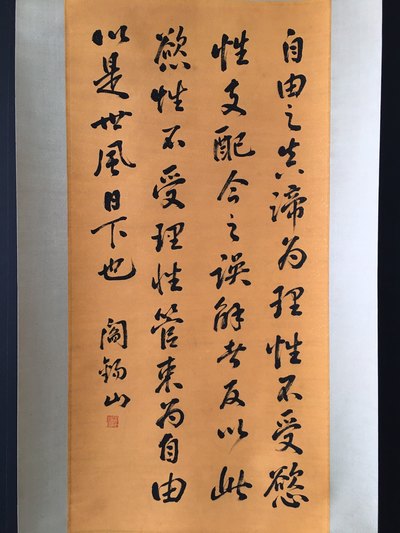 自由之真諦為理性不受慾
性支配今之誤解者反以此
慾性不受理性管束為自由
以是世風日下也
閻錫山